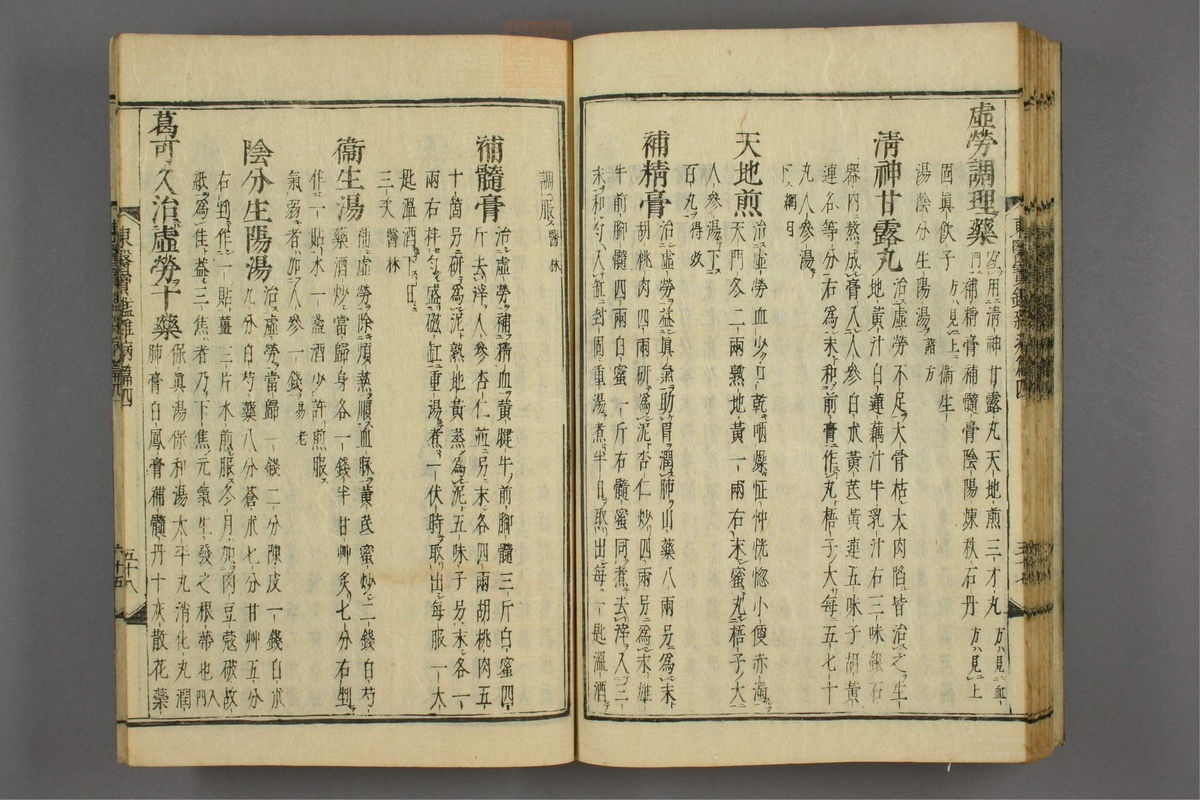 虛勞調理藥 宜用清神甘露丸天地煎三才丸方見血
門補精膏補髓膏陰陽煉秋石丹方見上
固眞飮子方見上衞生
湯陰分生陽湯諸方
清神甘露丸 治虛勞不足大骨枯大肉陷皆治之生
地黃汁白蓮藕汁牛乳汁右三味銀石
器內熬成膏入人參白朮黃芪黃連五味子胡黃
連各等分右爲末和前膏作丸梧子大每五七十
丸人參湯
下綱目
天地煎 治虛勞血少口乾咽燥怔忡恍惚小便赤濁
天門冬二兩熟地黃一兩右末蜜丸梧子大
人參湯下
百丸得效
補精膏 治虛勞益眞氣助胃潤肺山藥八兩另爲末
胡桃肉四兩硏爲泥杏仁炒四兩另爲末雄
牛前脚髓四兩白蜜一斤右髓蜜同煮去滓入三
末和勻入缸封固重湯煮半日取出每一匙溫酒
調服醫林
補髓膏 治虛勞補精血黃犍牛前脚髓三斤白蜜四
斤去滓人參杏仁並另末各四兩胡桃肉五
十箇另硏爲泥熟地黃蒸爲泥五味子另末各一
兩右拌勻盛磁缸重湯煮一伏時取出每服一大
匙溫酒下日
三次醫林
衞生湯 補虛勞除煩蒸順血脉黃芪蜜炒二錢白芍
藥酒炒當歸身各一錢半甘艸炙七分右剉
作一貼水一盞酒少許煎服
氣弱者加人參一錢易老
陰分生陽湯 治虛勞當歸一錢二分陳皮一錢白朮
九分白芍藥八分蒼朮七分甘艸五分
右剉作一貼薑三片水煎服冬月加肉豆蔻破故
紙爲佳益三焦者乃下焦元氣生發之根蒂也入門
葛可久治虛勞十藥 保眞湯保和湯太平丸消化丸潤
肺膏白鳳膏補髓丹十灰散花藥
東醫寶鑑雜病篇四
五十八